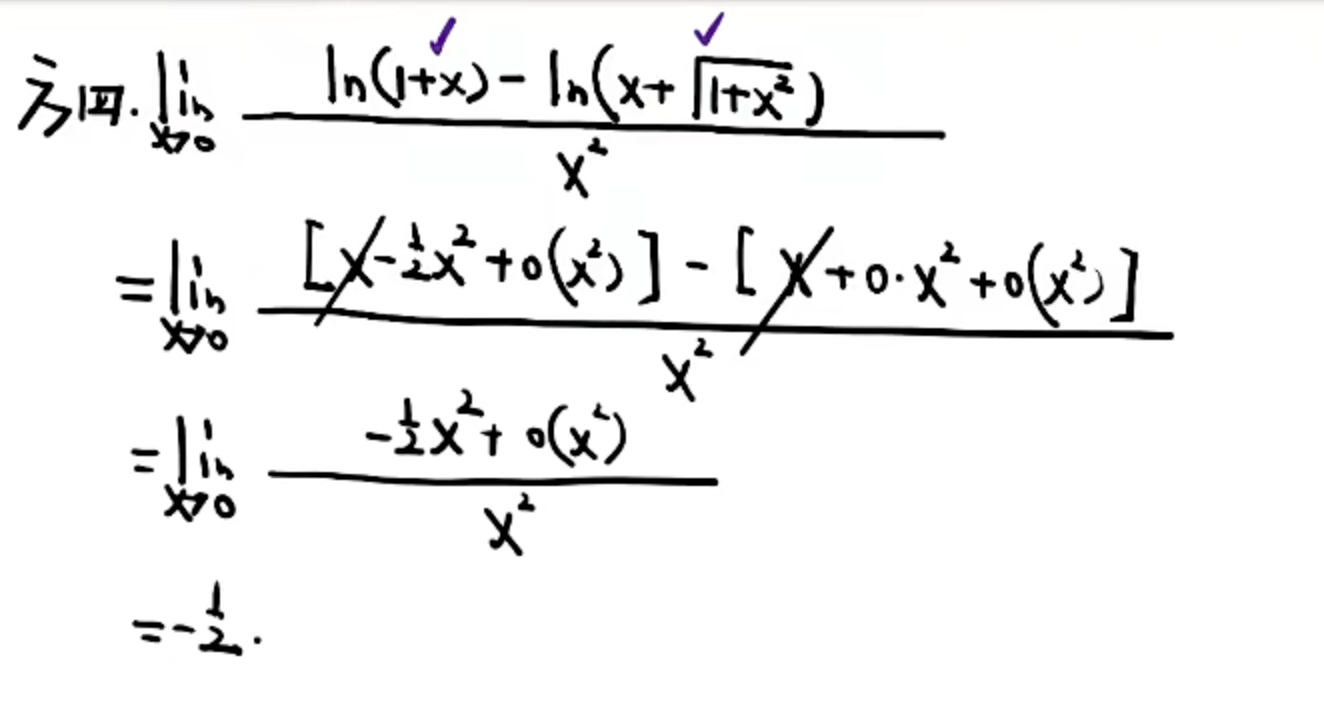 方四. lim x→0 (ln(1+x) - ln(x+√(1+x²))) / x²
= lim x→0 ([x - 1/2 x² + o(x²)] - [x + 0·x² + o(x²)]) / x²
= lim x→0 (-1/2 x² + o(x²)) / x²
= -1/2.